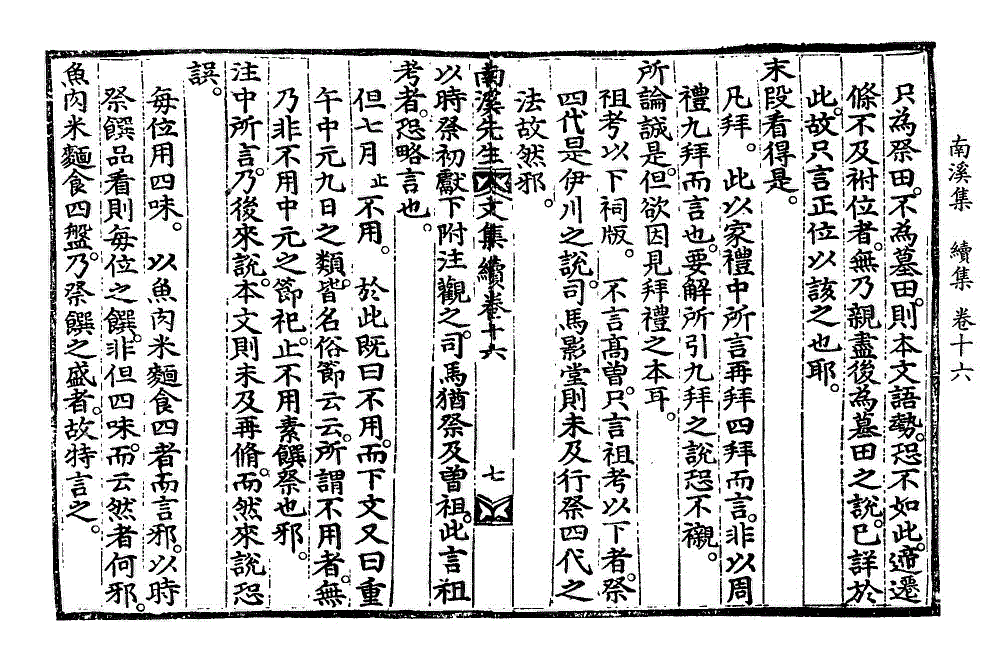 南溪集 續集 卷十六
只為祭田。不為墓田。則本文語勢。恐不如此。遞遷
條不及祔位者。無乃親盡後為墓田之說。已詳於
此。故只言正位以該之也耶。
末段看得是。
凡拜。 此以家禮中所言再拜四拜而言。非以周
禮九拜而言也。要解所引九拜之說。恐不襯。
所論誠是。但欲因見拜禮之本耳。
祖考以下祠版。 不言高曾。只言祖考以下者。祭
四代是伊川之說。司馬影堂則未及行祭四代之
法故然邪。
南溪先生朴文集 續卷十六 七
以時祭初獻下附注觀之。司馬猶祭及曾祖。此言祖
考者。恐略言也。
但七月止不用。 於此既曰不用。而下文又曰重
午中元九日之類。皆名俗節云云。所謂不用者。無
乃非不用中元之節祀。止不用素饌祭也邪。
注中所言。乃後來說。本文則未及再脩。而然來說恐
誤。
每位用四味。 以魚肉米麵食四者而言邪。以時
祭饌品看則每位之饌。非但四味。而云然者何邪。
魚肉米麵食四盤。乃祭饌之盛者。故特言之。